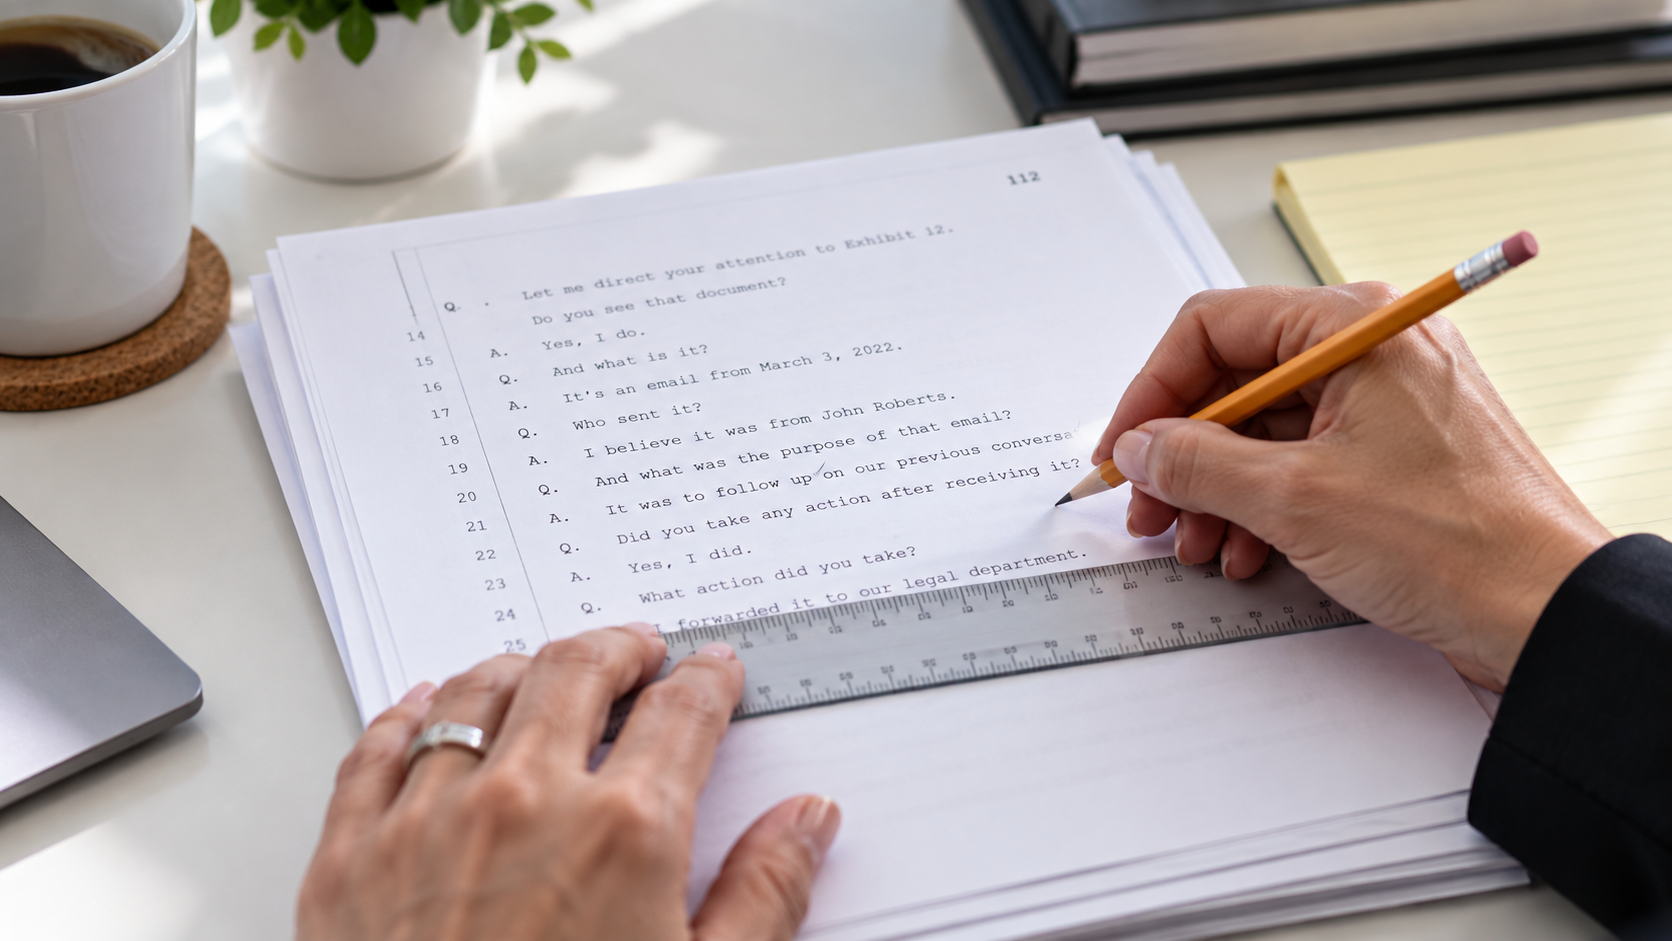 112
Q. Let me direct your attention to Exhibit 12.
Do you see that document?
14 A. Yes, I do.
15 Q. And what is it?
16 A. It's an email from March 3, 2022.
17 Q. Who sent it?
18 A. I believe it was from John Roberts.
19 Q. And what was the purpose of that email?
20 A. It was to follow up on our previous
21 Q. Did you take any action after receiving it?
22 A. Yes, I did.
23 Q. What action did you take?
24 I forwarded it to our legal department.
25